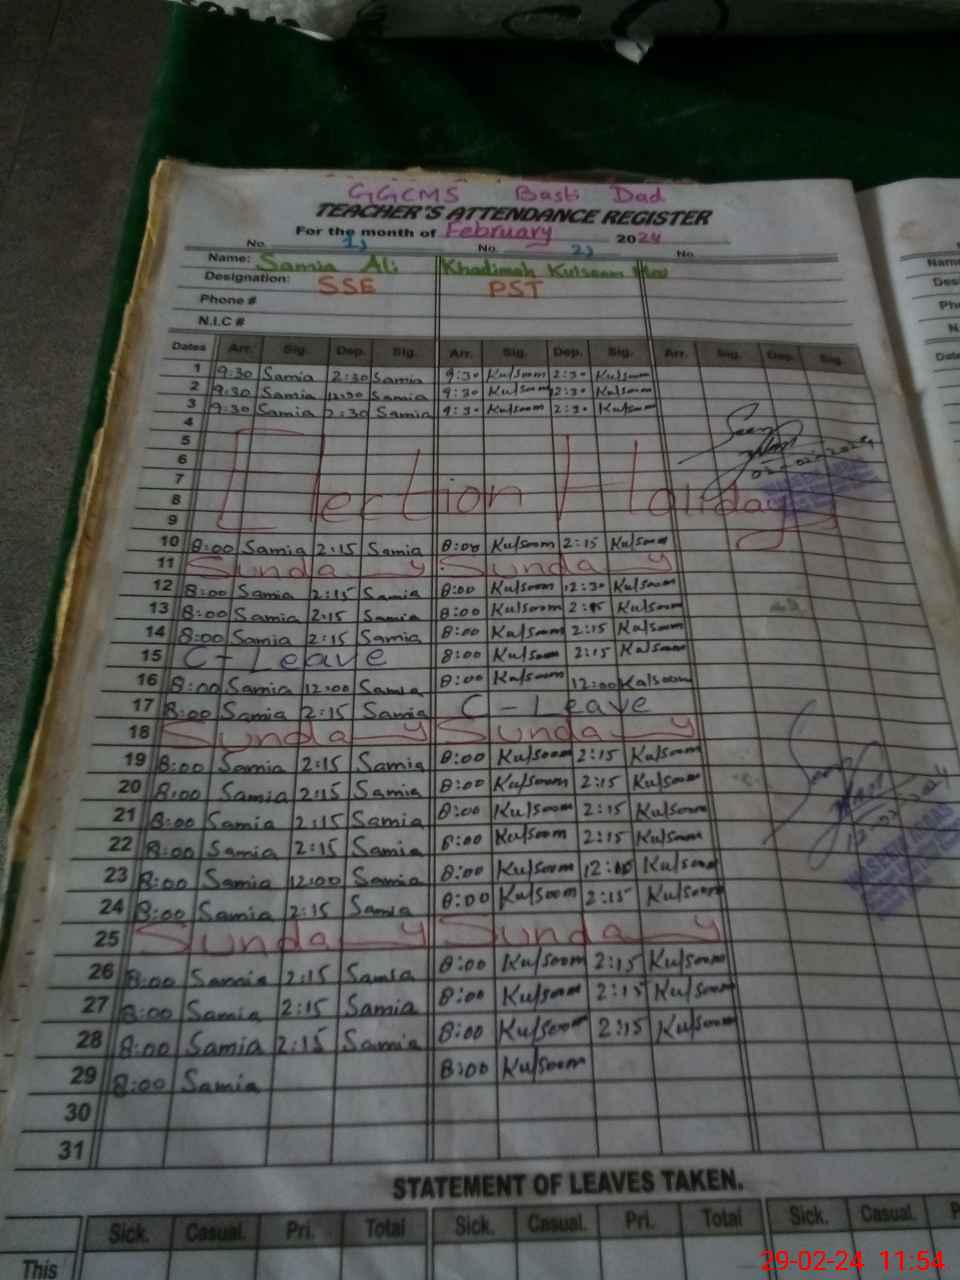 GGCMS Basti Dad
TEACHER'S ATTENDANCE REGISTER
For the month of February 2024
No. 1) No. 2) No.
Name: Samia Ali Khadimah Kulsoom
Designation: SSE PST
Phone #
N.I.C #
Dates Arr. Sig. Dep. Sig. Arr. Sig. Dep. Sig. Arr. Sig. Dep. Sig.
1 9:30 Samia 2:30 Samia 9:30 Kulsoom 2:30 Kulsoom
2 9:30 Samia 12:30 Samia 9:30 Kulsoom 12:30 Kulsoom
3 9:30 Samia 2:30 Samia 9:30 Kulsoom 2:30 Kulsoom
4
5
6
7
8 Election Holidays
9
10 8:00 Samia 2:15 Samia 8:00 Kulsoom 2:15 Kulsoom
11 Sunday Sunday
12 8:00 Samia 2:15 Samia 8:00 Kulsoom 12:30 Kulsoom
13 8:00 Samia 2:15 Samia 8:00 Kulsoom 2:15 Kulsoom
14 8:00 Samia 2:15 Samia 8:00 Kulsoom 2:15 Kulsoom
15 C-Leave 8:00 Kulsoom 2:15 Kulsoom
16 8:00 Samia 12:00 Samia 8:00 Kulsoom 12:00 Kulsoom
17 8:00 Samia 2:15 Samia C-Leave
18 Sunday Sunday
19 8:00 Samia 2:15 Samia 8:00 Kulsoom 2:15 Kulsoom
20 8:00 Samia 2:15 Samia 8:00 Kulsoom 2:15 Kulsoom
21 8:00 Samia 2:15 Samia 8:00 Kulsoom 2:15 Kulsoom
22 8:00 Samia 2:15 Samia 8:00 Kulsoom 2:15 Kulsoom
23 8:00 Samia 12:00 Samia 8:00 Kulsoom 12:00 Kulsoom
24 8:00 Samia 2:15 Samia 8:00 Kulsoom 2:15 Kulsoom
25 Sunday Sunday
26 8:00 Samia 2:15 Samia 8:00 Kulsoom 2:15 Kulsoom
27 8:00 Samia 2:15 Samia 8:00 Kulsoom 2:15 Kulsoom
28 8:00 Samia 2:15 Samia 8:00 Kulsoom 2:15 Kulsoom
29 8:00 Samia 8:00 Kulsoom
30
31
STATEMENT OF LEAVES TAKEN.
Sick. Casual. Pri. Total Sick. Casual. Pri. Total Sick. Casual.
This
29-02-24 11:54